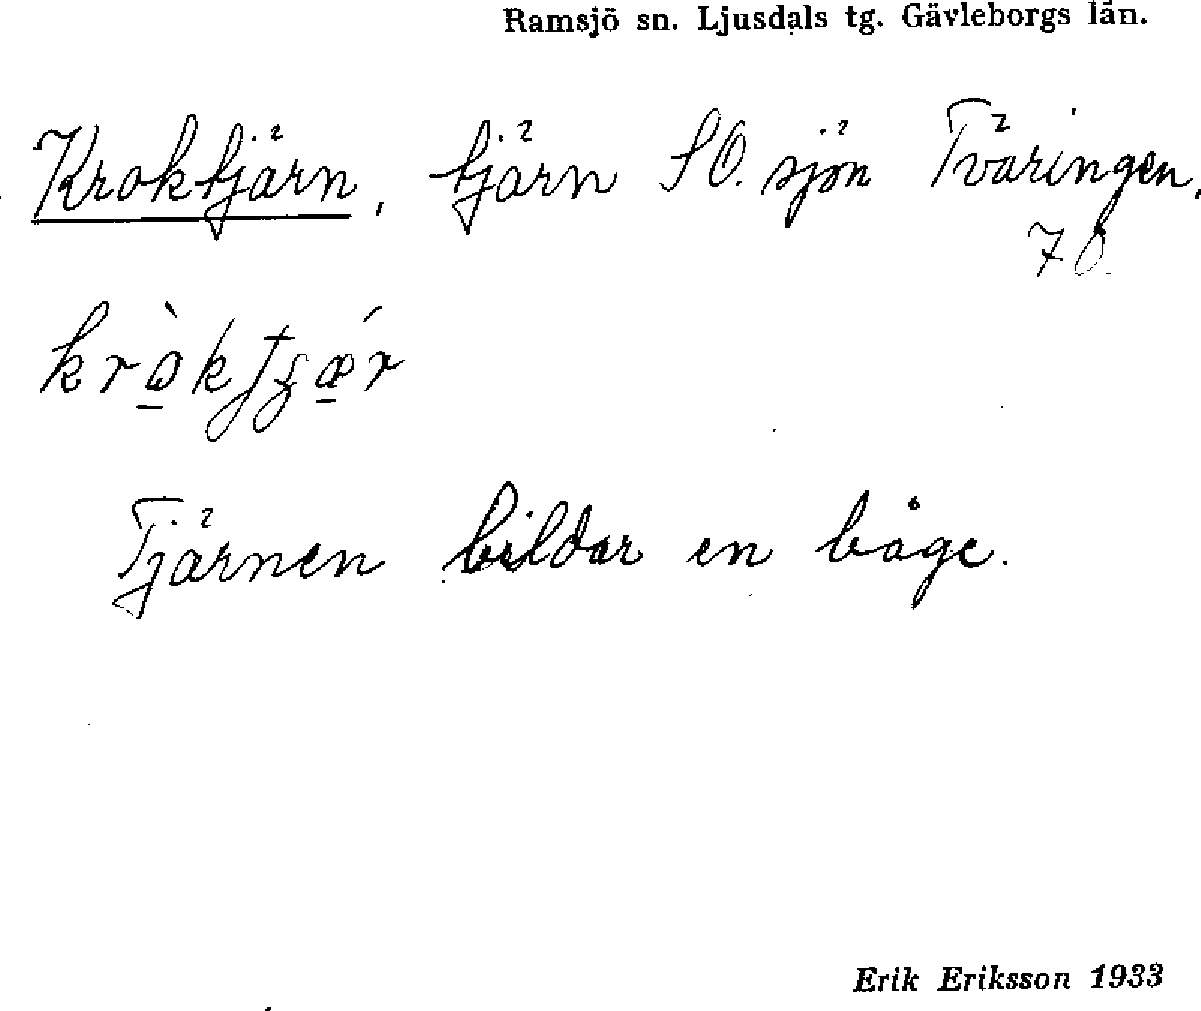 Ramsjö sn. Ljusdals tg. Gävleborgs län.
Kroktjärn, tjärn SO. sjön Tväringen.
7 O.
Tjärnen bildar en båge.
Erik Eriksson 1933